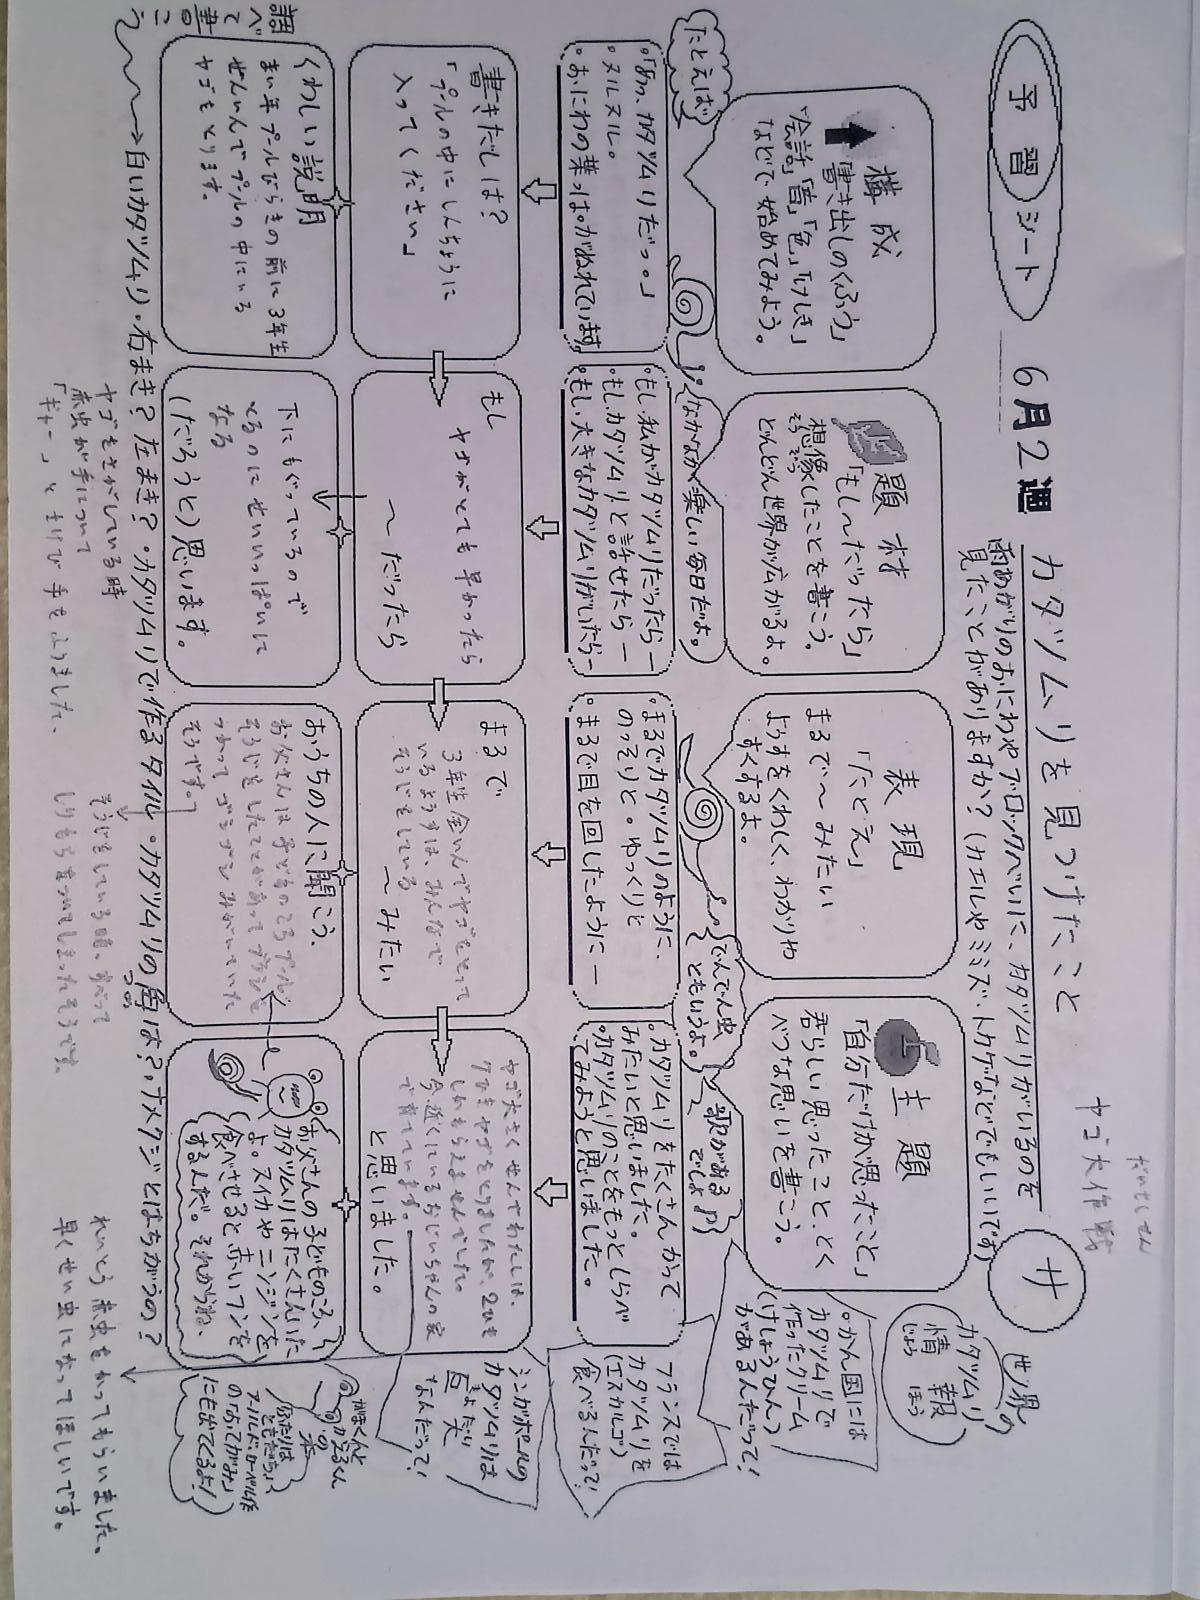 予習シート
6月2週
カタツムリを見つけたこと
雨あがりのおにわやブロックべいに、カタツムリがいるのを
見たことがありますか？（カエルやミミズ・トカゲなどでもいいです）
サ
だいさくせん
ヤゴ大作戦
構成
書き出しのくふう
「会話」「音」「色」「けしき」
などで始めてみよう。
題材
「もし～だったら」
想像したことを書こう。
そうぞう
どんどん世界が広がるよ。
表現
「たとえ」
まるで～みたい
ようすをくわしく、わかりや
すくするよ。
主題
「自分だけが思ったこと」
君らしい思ったこと、とく
べつな思いを書こう。
世界の
カタツムリ
情報
じょうほう
。かん国には
カタツムリで
作ったクリーム
（けしょうひん）
があるんだって！
フランスでは
カタツムリを
（エスカルゴ）
食べるんだって！
シンガポールの
カタツムリは
巨大
きょだい
なんだって！
たとえば
なかなか楽しい毎日だよ。
でんでん虫
ともいうよ。
歌がある
でしょ♪
。「あっ、カタツムリだっ。」
。ヌルヌル。
。おにわの葉っぱがぬれています
。もし私がカタツムリだったら―
。もしカタツムリと話せたら―
。もし大きなカタツムリがいたら―
。まるでカタツムリのように、
のっそりと。ゆっくりと
。まるで目を回したように―
。カタツムリをたくさんかって
みたいと思いました。
。カタツムリのことをもっとしらべ
てみようと思いました。
書きだしは？
「プールの中にしんちょうに
入ってください」
もし
ヤゴがとても早かったら
～だったら
まるで
3年生全いんでヤゴをとって
いるようすは、みんなで
そうじをしている
～みたい
ヤゴ大さくせんでわたしは、
7ひきヤゴをとりましたが、2ひき
しかもらえませんでした。
今、近くにいるおじいちゃんの家
で育てています。
と思いました。
くわしい説明
まい年プールびらきの前に3年生
ぜんいんでプールの中にいる
ヤゴをとります。
下にもぐっているので
とるのにせいいっぱいに
なる
（だろうと）思います。
おうちの人に聞こう。
お父さんは子どものころプール
そうじをしたことがあってブラシを
つかってゴシゴシみがいていた
そうです。
お父さんの子どものころ、
カタツムリはたくさんいた
よ。スイカやニンジンを
食べさせると赤いフンを
するんだ。それからね、
がまくんと
かえるくん
の本
「ふたりは
ともだち」
アーノルド・ローベル作
の「おてがみ」
にも出てくるよ！
調べて書こう
白いカタツムリ・右まき？左まき？・カタツムリで作るタイル・カタツムリの角は？・ナメクジとはちがうの？
つの
ヤゴをさがしている時
赤虫が手について
「ギャー」とさけび手をふりました。
そうじをしている時、すべって
しりもちをついてしまったそうです。
れいとう赤虫をかってもらいました。
早くせい虫になってほしいです。